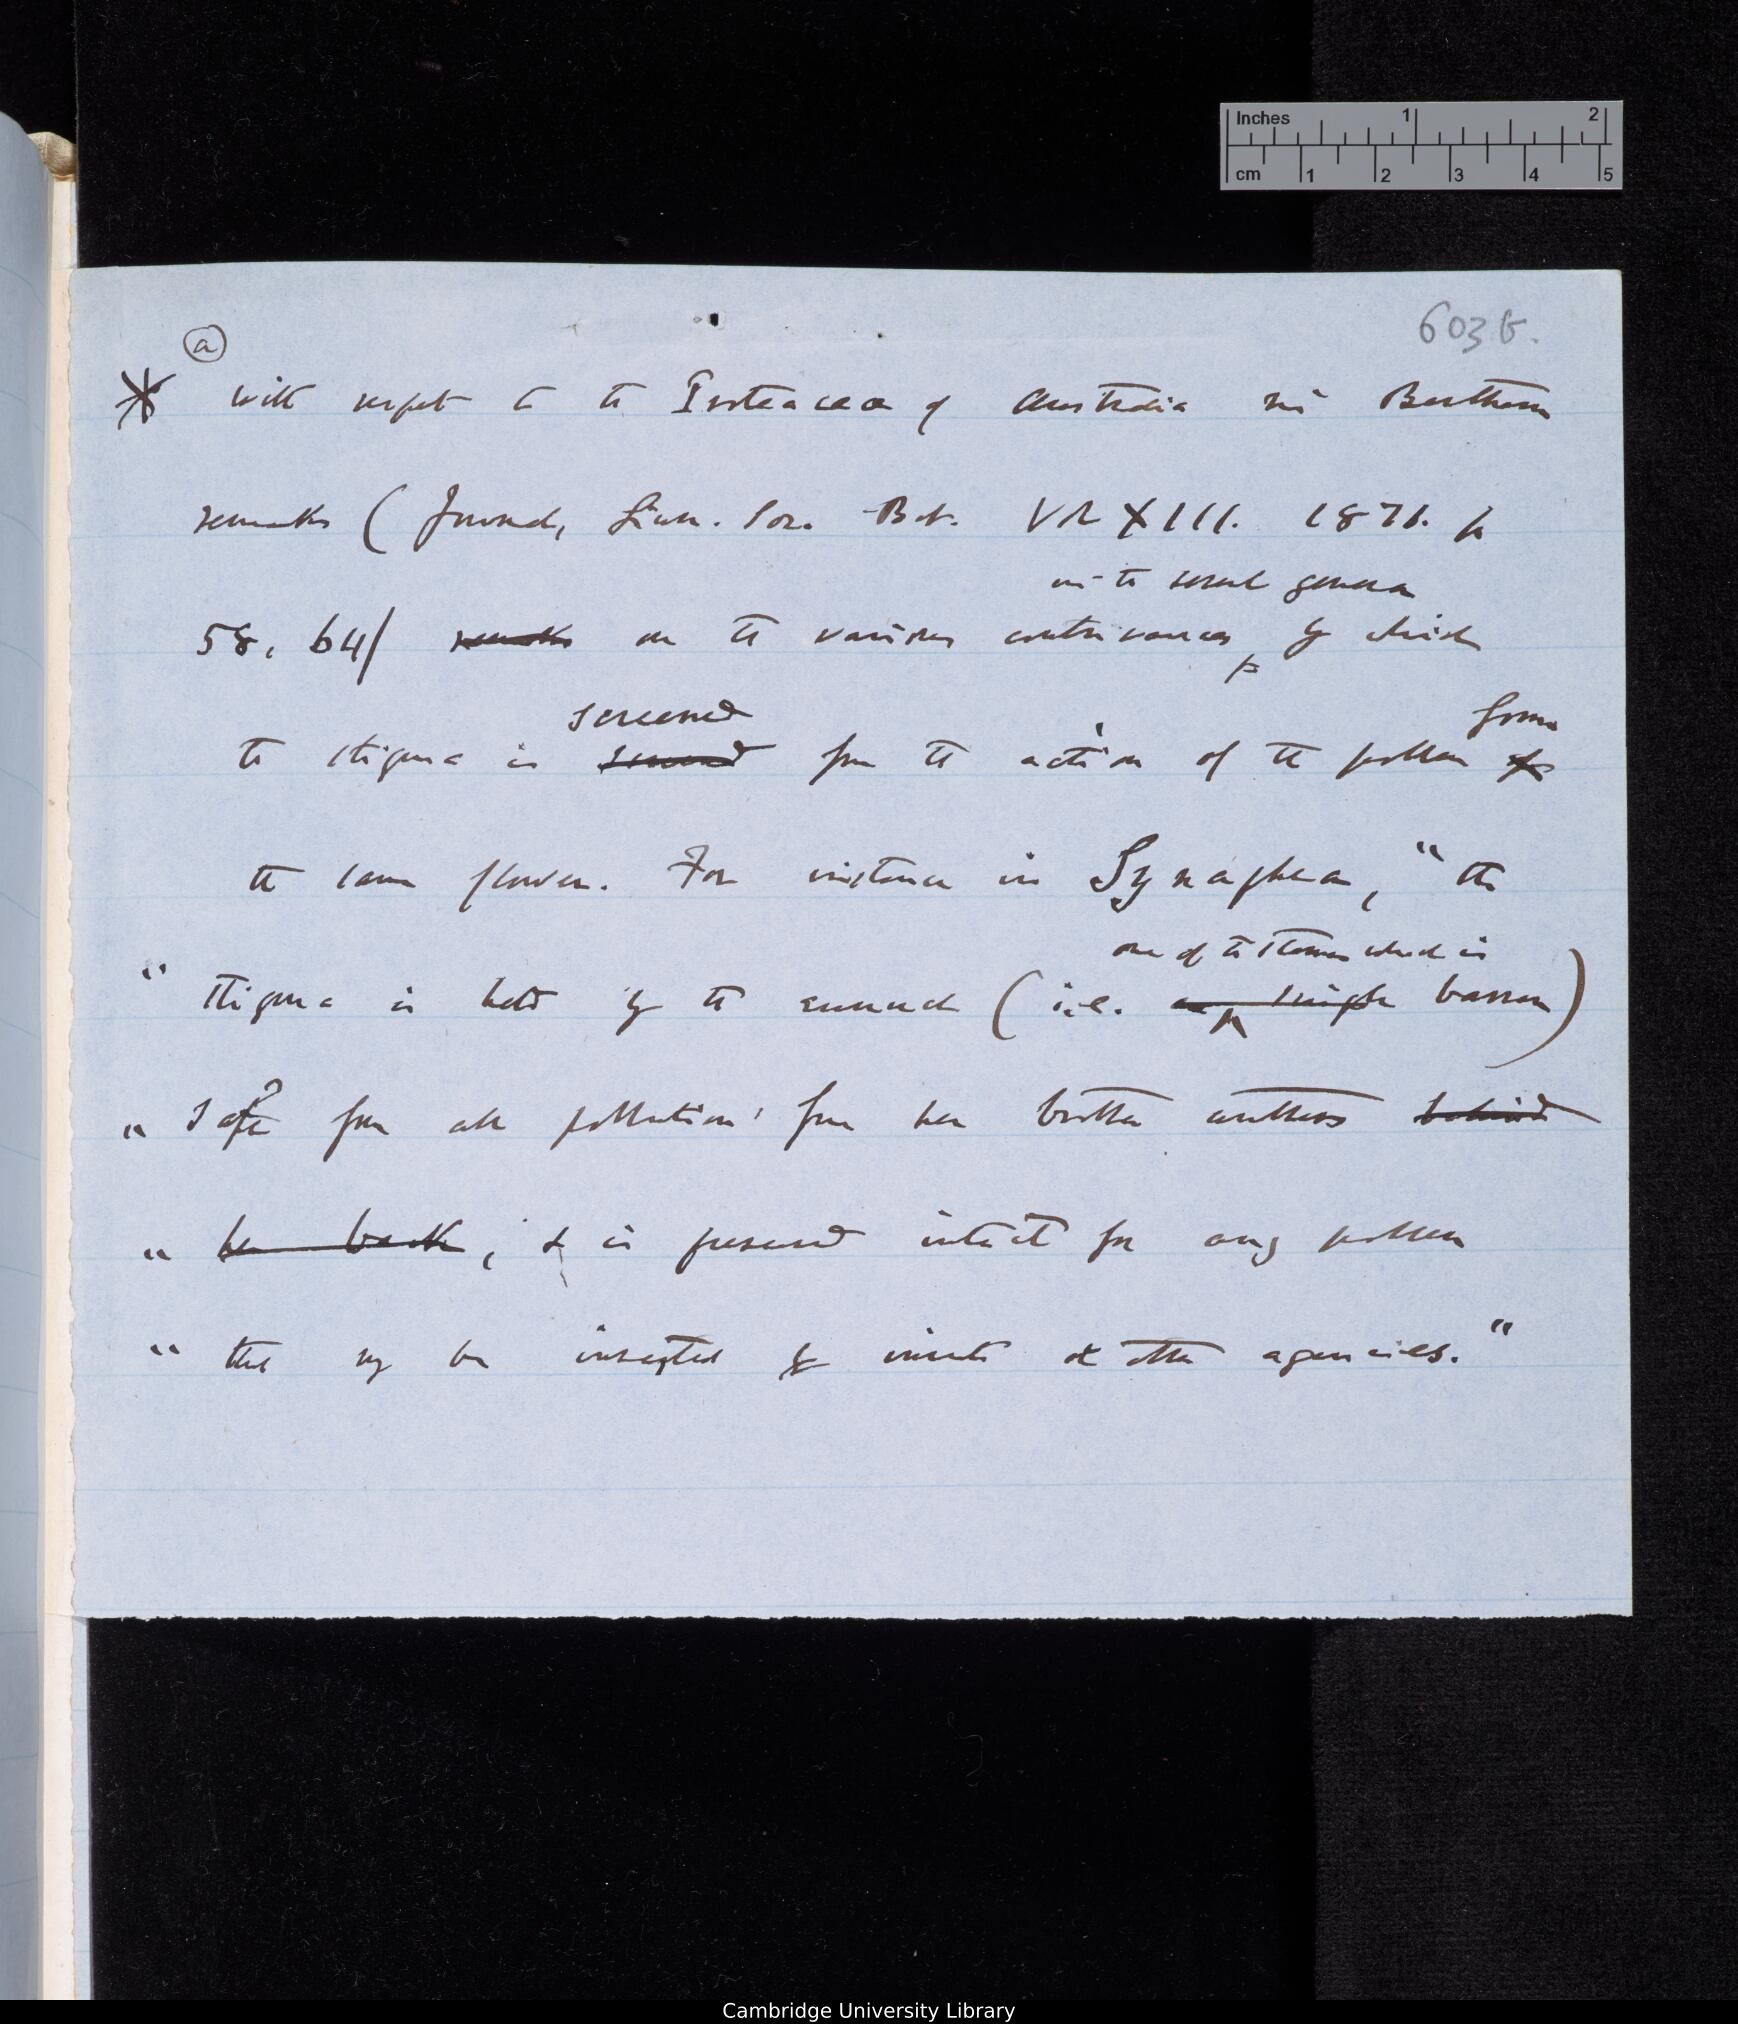 Inches 1 2
cm 1 2 3 4 5
603 b.
(a)
With respect to the Proteaceae of Australia Mr Bentham
remarks (Journal, Linn. Soc. Bot. Vol XIII. 1871. p
in the several genera
58, 64) remarks on the various contrivances by which
screened from
the stigma is screened from the action of the pollen of
the same flower. For instance in Synaphea, "the
one of the stamens which is
" stigma is held by the eunuch (i.e. a single barren)
" safe from all pollution from her brother anthers behind
" her back, & is preserved intact for any pollen
" that may be inserted by insects & other agencies."
Cambridge University Library